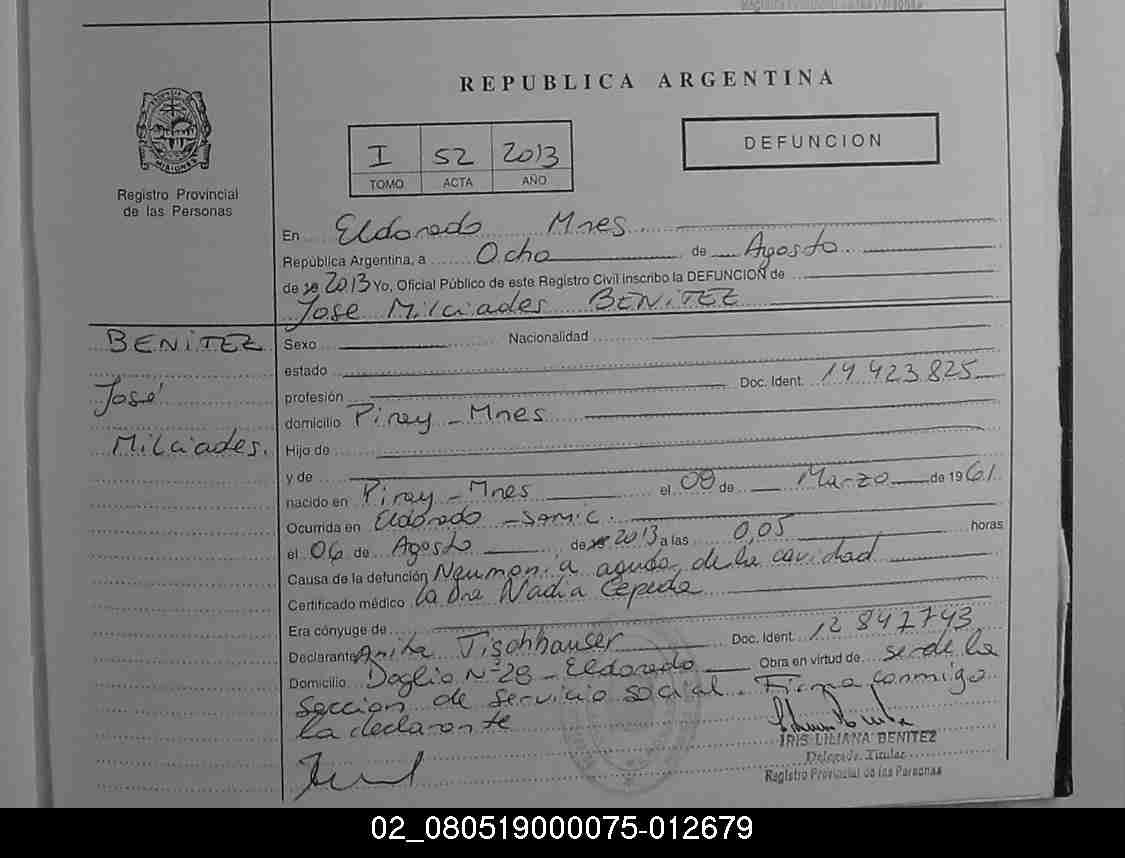 REPUBLICA ARGENTINA
MISIONES
Registro Provincial
de las Personas
I 52 2013
TOMO ACTA AÑO
DEFUNCION
En Eldorado Mnes
República Argentina, a Ocho de Agosto
de 2013 Yo, Oficial Público de este Registro Civil inscribo la DEFUNCION de
José Milciades BENITEZ
BENITEZ
José
Milciades.
Sexo Nacionalidad
estado
profesión Doc. Ident. 14 423 825
domicilio Piray - Mnes
Hijo de
y de
nacido en Piray - Mnes el 08 de Marzo de 1961
Ocurrida en Eldorado - Samic.
el 06 de Agosto de 2013 a las 0,05 horas
Causa de la defunción Neumonia aguda, de la cavidad
Certificado médico la Dra Nadia Cepeda
Era cónyuge de
Declarante Anita Tischhauser Doc. Ident. 12 847743
Domicilio Doglio Nº 28 - Eldorado Obra en virtud de ser de la
seccion de servicio social. Firma conmigo
la declarante
IRIS LILIANA BENITEZ
Delegada Titular
Registro Provincial de las Personas
02_080519000075-012679